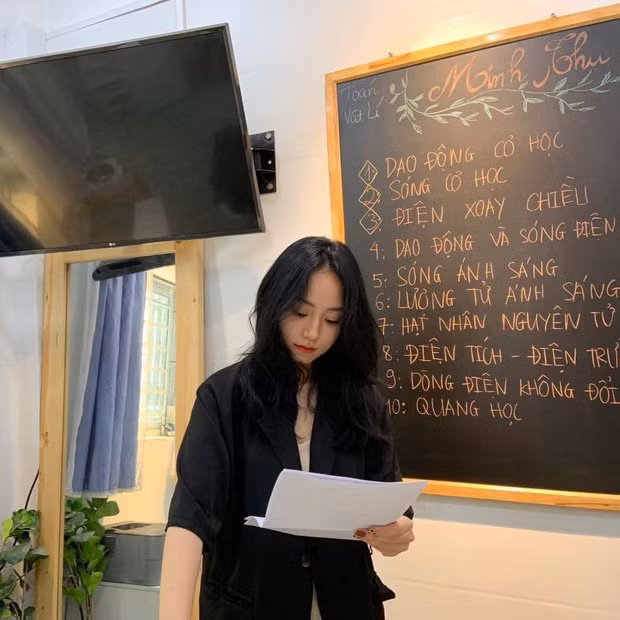 LG
Toán
Vật Lí
Minh Thu
1 DAO ĐỘNG CƠ HỌC
2 SÓNG CƠ HỌC
3 ĐIỆN XOAY CHIỀU
4. DAO ĐỘNG VÀ SÓNG ĐIỆN
5. SÓNG ÁNH SÁNG
6: LƯỢNG TỬ ÁNH SÁNG
7: HẠT NHÂN NGUYÊN TỬ
8: ĐIỆN TÍCH - ĐIỆN TRƯ
9: DÒNG ĐIỆN KHÔNG ĐỔI
10: QUANG HỌC